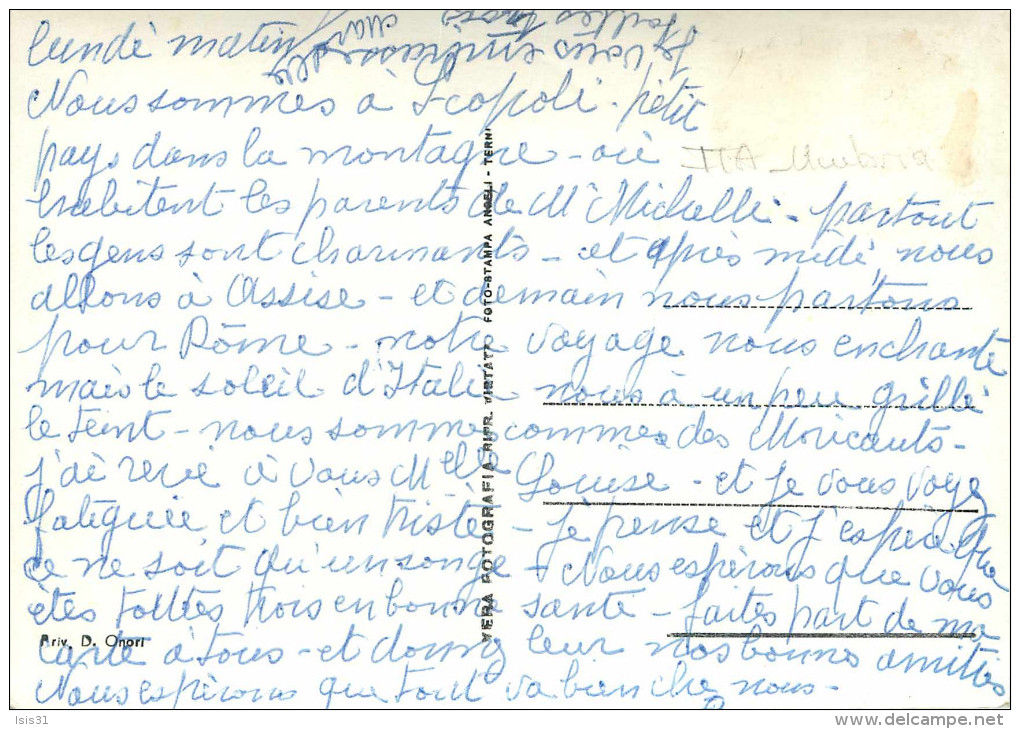 lundi matin
Nous sommes à Scopoli - petit
pays dans la montagne - où
habitent les parents de Mr Michelli - partout
les gens sont charmants - et après midi, nous
allons à Assise - et demain nous partons
pour Rôme - notre voyage nous enchante
mais le soleil d'Italie nous à un peu grillé
le teint - nous sommes comme des Moricauts -
j'ai revé à vous Melle Louise - et je vous voyez
fatiguée et bien triste - je pense et j'espère que
ce ne soit qu'un songe - Nous espérons que vous
êtes toutes trois en bonne santé - faites part de ma
carte à tous - et donnez leur nos bonnes amitiés
Nous espérons que tout va bien chez nous -
Je vous embrasse
toutes trois
ITA - Umbria
VERA FOTOGRAFIA RIPR. VIETATA FOTO-STAMPA ANGELI - TERNI
Priv. D. Onori
Isis31
www.delcampe.net